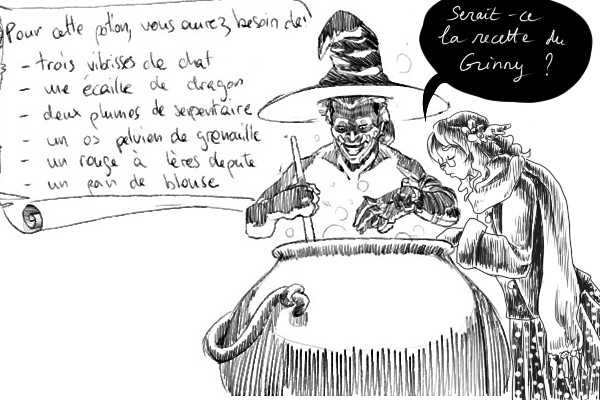 Pour cette potion, vous aurez besoin de:
- trois vibrisses de chat
- une écaille de dragon
- deux plumes de serpentaire
- un os pelvien de grenouille
- un rouge à lèvres depute
- un pan de blouse
Serait-ce
la recette du
Grinny ?